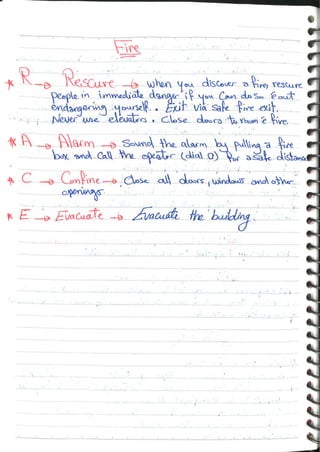 Fire
* R → Rescure → when you discover a fire, rescure
people in immediate danger if you can do so c̄ out
endangering yourself. Exit via safe fire exit.
Never use elevators. Close doors to room c̄ fire.
* A → Alarm → Sound the alarm by pulling a fire
box and call the opeator (dial 0) for a safe distance
* C → Confine → Close all doors, windows and other
openings.
* E → Evacuate → Evacuate the building.